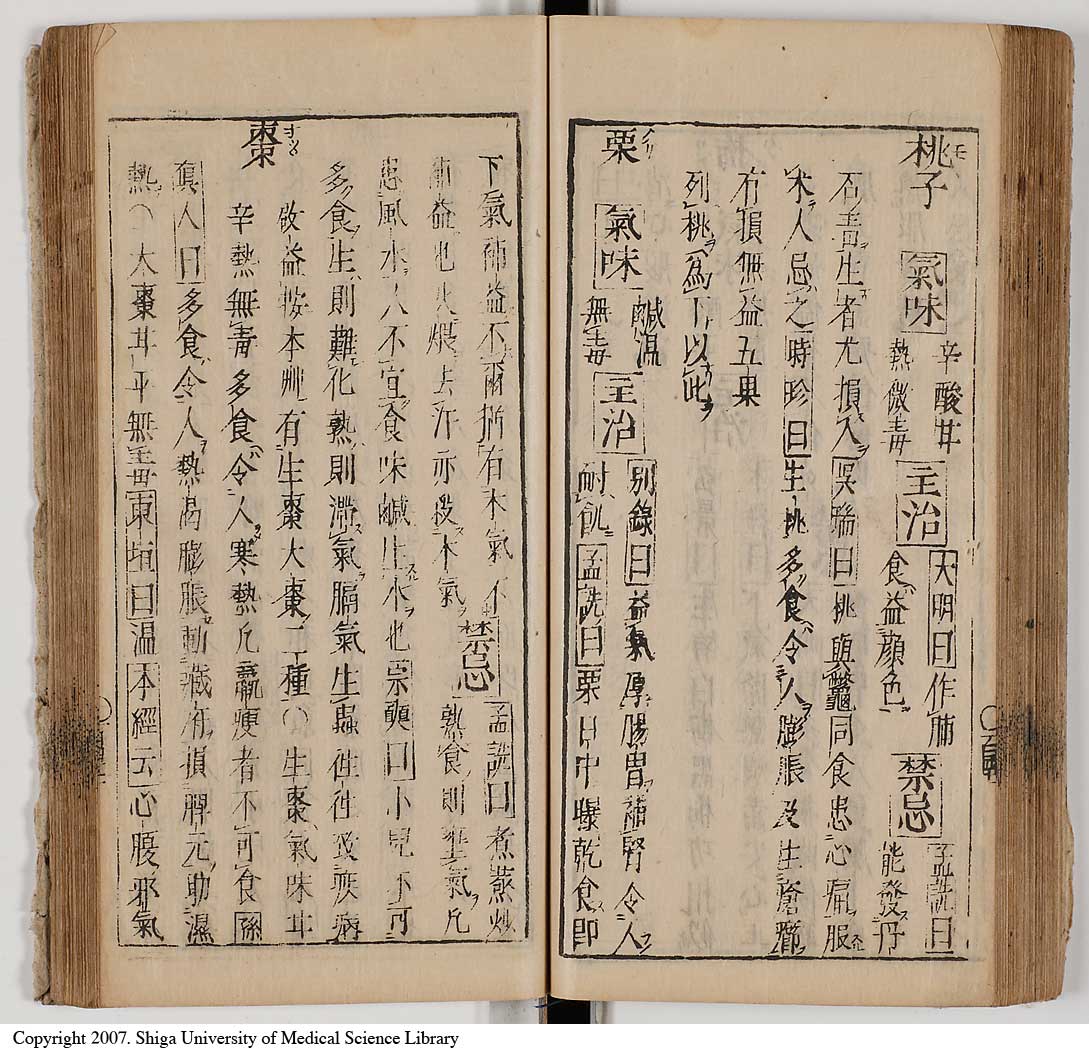 桃子 モヽ 氣味 辛酸甘熱微毒 主治 大明曰作脯食益顔色 禁忌 孟詵曰能發丹
石毒生者尤損人 吳瑞曰桃與鱉同食患心痛服
朮人忌之 時珍曰生桃多食令人膨脹及生瘡癤
有損無益五果
列桃爲下以此
栗 クリ 氣味 鹹温無毒 主治 別錄曰益氣厚腸胃補腎令人耐飢 孟詵曰栗日中曝乾食即
下氣補益不爾猶有木氣不
補益也火煨去汗亦殺木氣 禁忌 孟詵曰煮蒸炒熟食則壅氣凡
患風水人不宜食味鹹生水也 宗奭曰小兒不可
多食生則難化熟則滯氣膈氣生蟲往往致疾病
棗
故益按本艸有生棗大棗二種〇生棗氣味甘
辛熱無毒多食令人寒熱凡羸瘦者不可食 孫
眞人曰多食令人熱渴膨脹動臟腑損脾元助濕
熱〇大棗甘平無毒 東垣曰温 本經云心腹邪氣
Copyright 2007. Shiga University of Medical Science Library